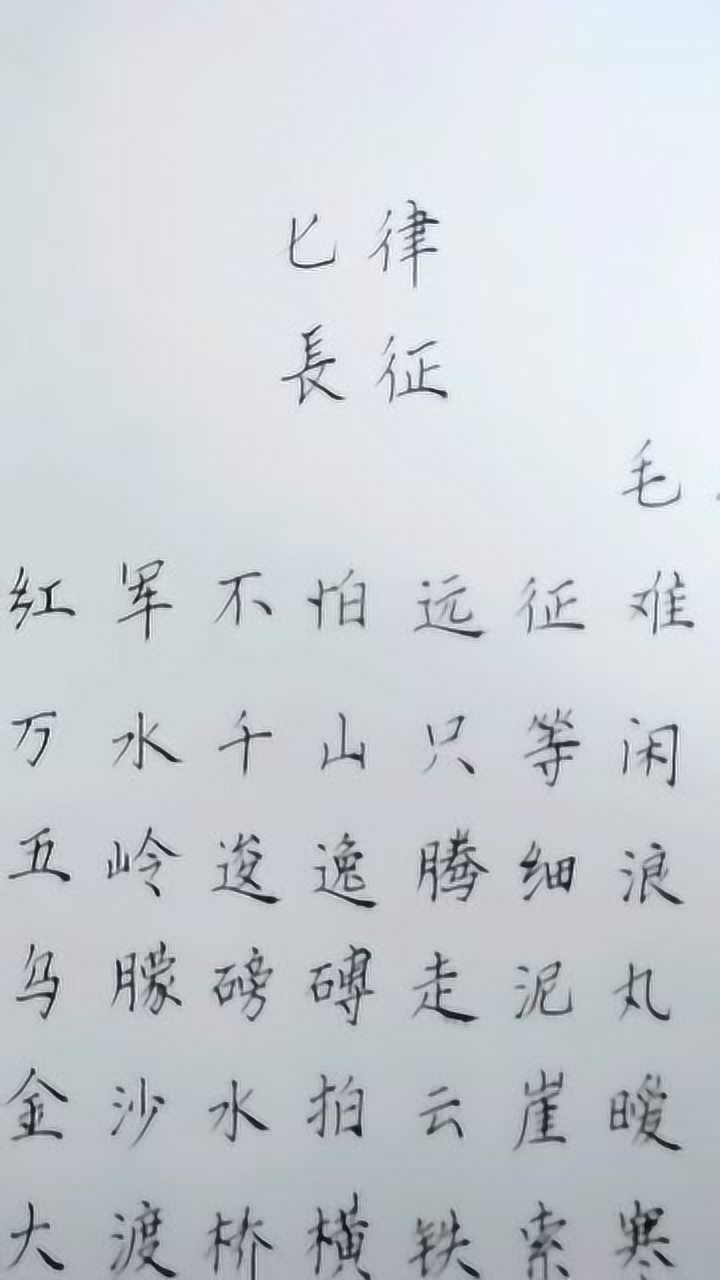 七律
長征
毛
红军不怕远征难
万水千山只等闲
五岭逶逸腾细浪
乌朦磅礡走泥丸
金沙水拍云崖暧
大渡桥横铁索寒